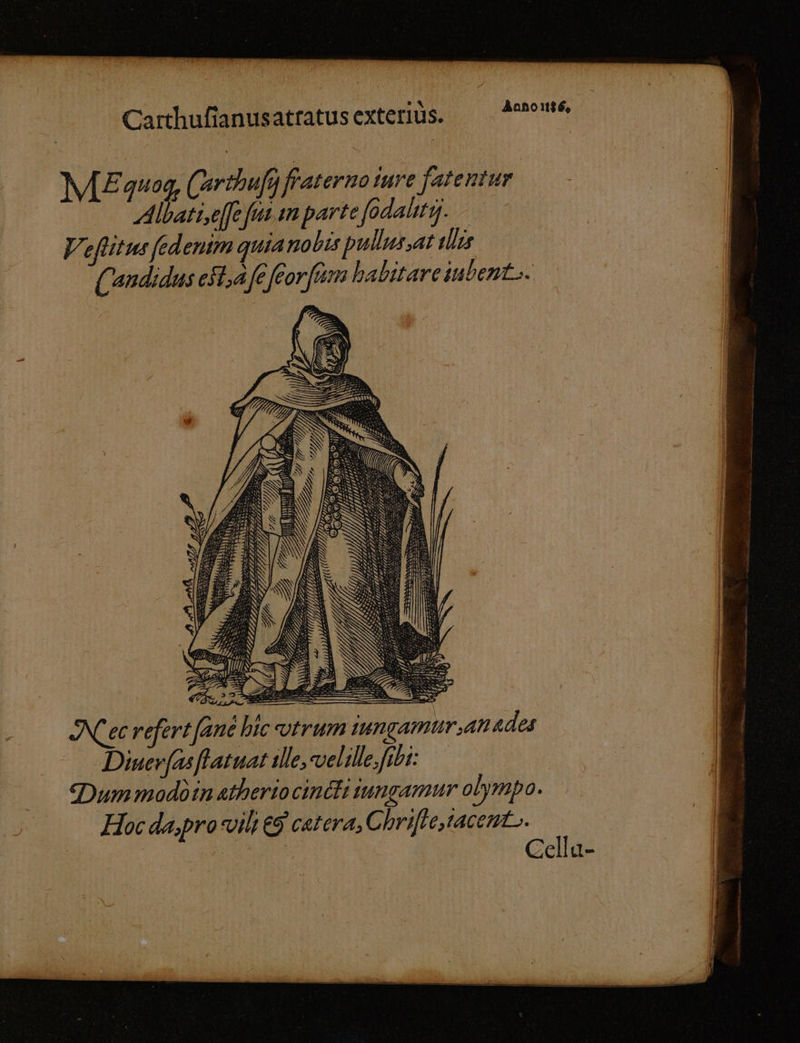 Carthuſianus atratus exteriùs. Anno 1186.
MEquoq; Carthuſij fraterno iure fatentur
Albati, eſſe ſui in parte ſodalitij.
Veſtitus ſed enim quia nobis pullus, at illis
Candidus eſt, à ſe ſeorſum habitare iubent.
Nec refert ſanè hîc vtrum iungamur, an ædes
Diuerſas ſtatuat ille, vel ille, ſibi:
Dum modò in ætherio cincti iungamur olympo.
Hoc da, pro vili & cætera, Chriſte, iacent.
Cella-